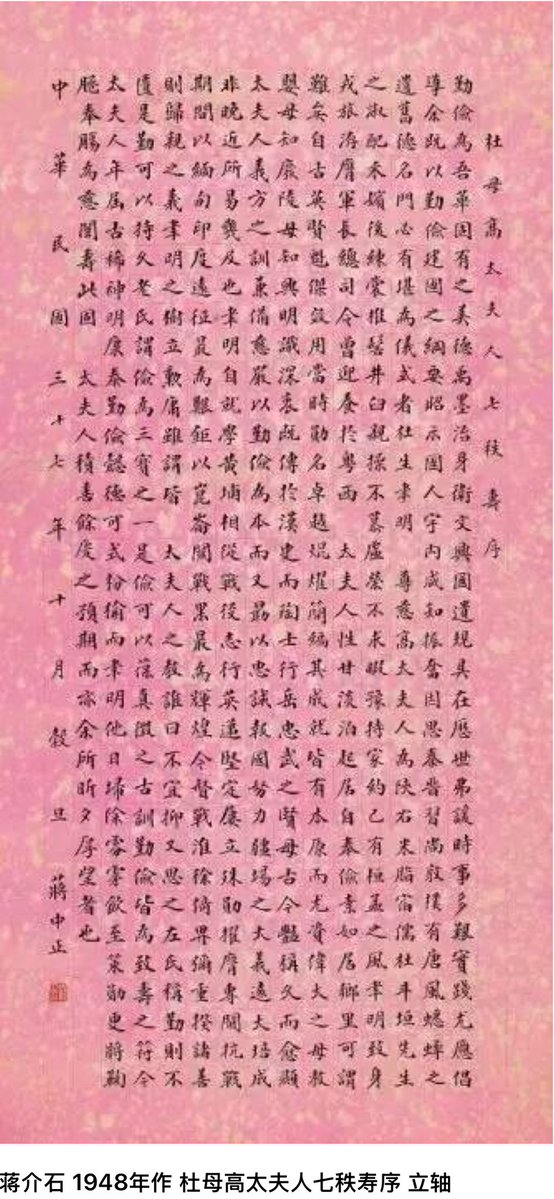 杜母高太夫人七秩壽序
勤儉為吾華固有之美德禹墨治身衛文興國遺規具在歷世弗諼時事多艱實踐尤應倡
導余既以勤儉建國之綱要昭示國人宇內咸知振奮因思秦晉習尚敦樸有唐風蟋蟀之
遺舊德名門必有堪為儀式者杜生聿明 尊慈高太夫人為陝右米脂宿儒杜斗垣先生
之淑配來嬪後練裳椎髻井臼親操不慕虛榮不求暇豫持家約己有桓孟之風聿明致身
戎旅洊膺軍長總司令曾迎養於粵西 太夫人性甘淡泊起居自奉儉素如居鄉里可謂
難矣自古英賢魁傑效用當時勛名卓越焜燿簡編其成就皆有本原而尤資偉大之母教
嬰母知廢陵母知興明識深衷既傳於漢史而陶士行岳忠武之賢母古今豔稱久而愈顯
太夫人義方之訓兼備慈嚴以勤儉為本而又勗以忠誠報國努力疆場之大義遠大培成
非晚近所易幾及也聿明自就學黃埔相從戰役志行英邁堅定屢立殊勛擢膺專閫抗戰
期間以緬甸印度遠征最為艱鉅以崑崙關戰果最為輝煌今督戰淮徐倚畀彌重揆諸善
則歸親之義聿明之樹立勳庸雖謂皆 太夫人之教誰曰不宜抑又思之左氏稱勤則不
匱是勤可以持久老氏謂儉為三寶之一是儉可以葆真徵之古訓勤儉皆為致壽之符今
太夫人年屆古稀神明康泰勤儉懿德可式枌榆而聿明他日埽除雰飲至策勛更將鞠
奉觴為慈闈壽此固 太夫人積善餘慶之預期而亦余所昕夕厚望者也
中華民國三十七年十月穀旦 蔣中正
蒋介石 1948年作 杜母高太夫人七秩寿序 立轴